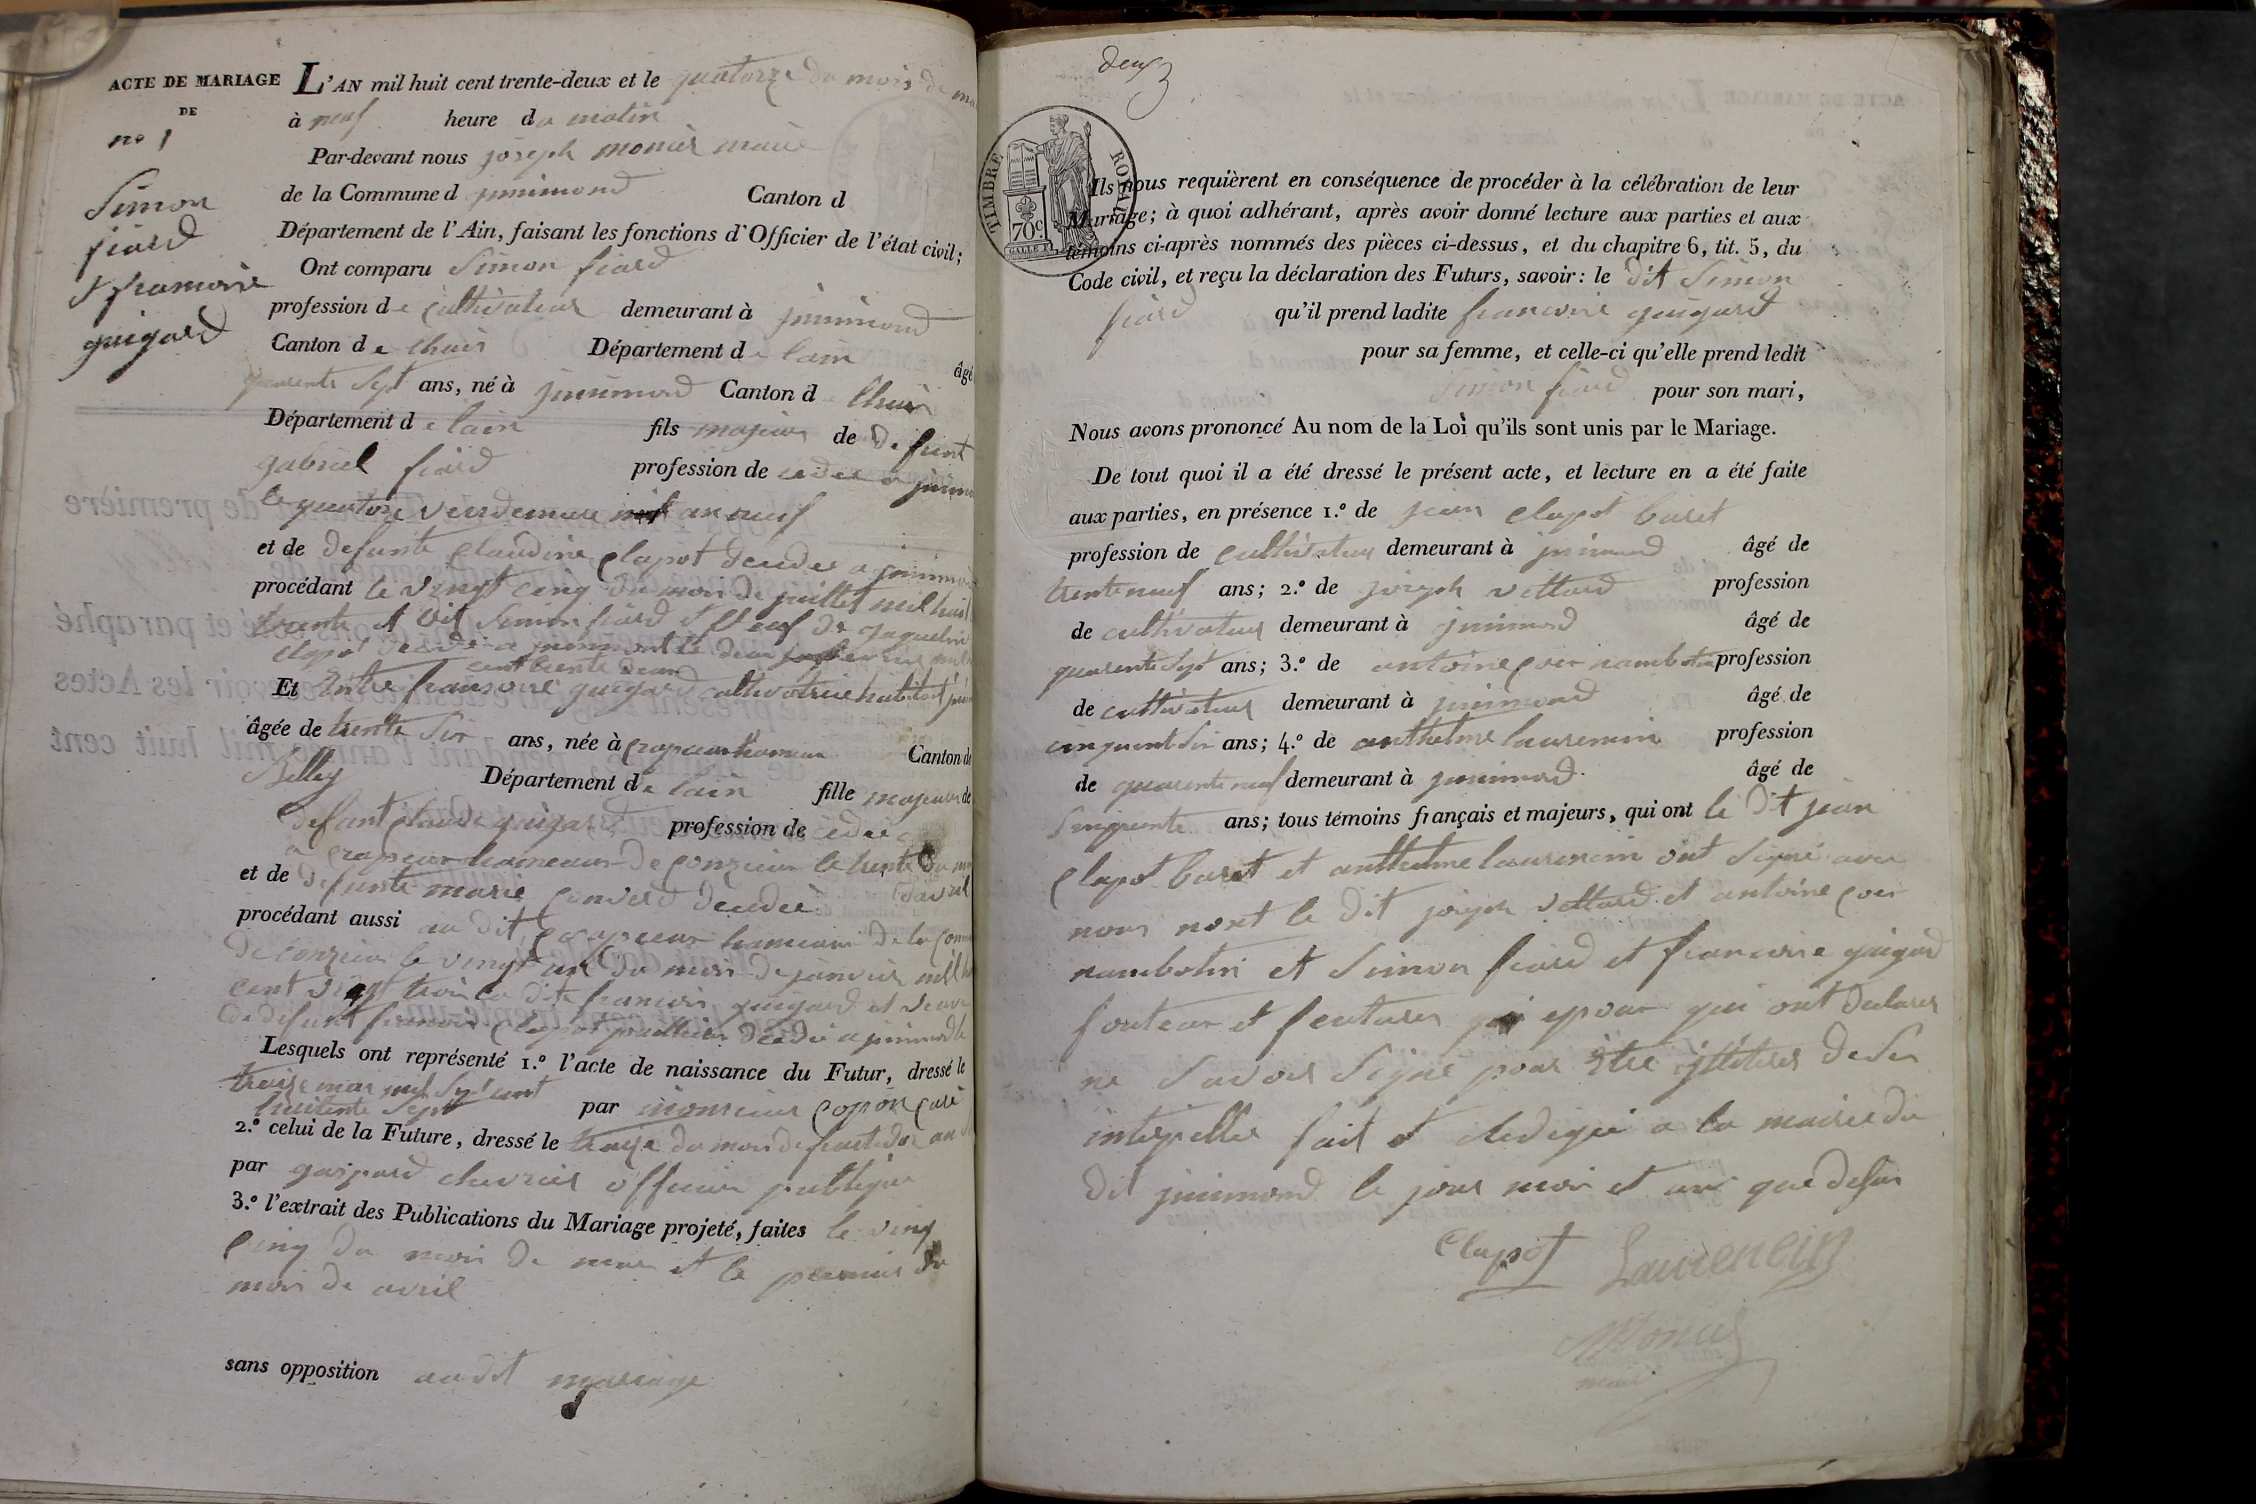 ACTE DE MARIAGE
DE
no 1
Simon
fiard
et francoise
guigard
L'AN mil huit cent trente-deux et le quatorze du mois de
à neuf heure du matin
Par-devant nous joseph monier maire
de la Commune d jnnimond Canton d
Département de l'Ain, faisant les fonctions d'Officier de l'état civil;
Ont comparu Simon fiard
profession de cultivateur demeurant à jnnimond
Canton de lhuis Département de lain âgé
quarente sept ans, né à jnnimond Canton d lhuis
Département de lain fils majeur de defunt
gabriel fiard profession de
le quatorze vendemiaire an neuf
et de defunte Claudine clapot decedee a jnnimond
procédant le vingt cinq du mois de juillet mil huit
trente et dit Simon fiard et veuf de jaqueline
clapot decedee a jnnimont le deux
cent trente deux
Et Entre francoise guigard cultivatrice habitant
âgée de trente six ans, née à crapeou hameau Canton de
Belley Département de lain fille majeure de
defunt claude guigard profession de
a crapeou hameau de conzieu le trente du
et de defunte marie convert decedee davril
procédant aussi au dit crapeou hameau de la
de conzieu le vingt un du mois de janvier mil
cent vingt trois la dite francoise guigard et veuve
de defunt francois clapot decede a jnnimond le
Lesquels ont représenté 1.º l'acte de naissance du Futur, dressé le
treize mars mil sept cent
huitente sept par monsieur coyon curé
2.º celui de la Future, dressé le treize du mois de an
par gaspard chevrier officier publique
3.º l'extrait des Publications du Mariage projeté, faites le ving
cinq du mois de mars et le premier du
mois de avril
sans opposition audit mariage
deux
TIMBRE ROYAL
70c.
Ils nous requièrent en conséquence de procéder à la célébration de leur
Mariage; à quoi adhérant, après avoir donné lecture aux parties et aux
témoins ci-après nommés des pièces ci-dessus, et du chapitre 6, tit. 5, du
Code civil, et reçu la déclaration des Futurs, savoir: le dit Simon
fiard qu'il prend ladite francoise guigard
pour sa femme, et celle-ci qu'elle prend ledit
Simon fiard pour son mari,
Nous avons prononcé Au nom de la Loi qu'ils sont unis par le Mariage.
De tout quoi il a été dressé le présent acte, et lecture en a été faite
aux parties, en présence 1.º de jean clapot buret
profession de cultivateur demeurant à jnnimond âgé de
trente neuf ans; 2.º de joseph vettard profession
de cultivateur demeurant à jnnimond âgé de
quarente sept ans; 3.º de antoine coer rambotin profession
de cultivateur demeurant à jnnimond âgé de
cinquent six ans; 4.º de anthelme laurencin profession
de quarente neuf demeurant à jnnimond âgé de
Sinquente ans; tous témoins français et majeurs, qui ont le dit jean
clapot buret et anthelme laurencin ont signé avec
nous nont le dit joseph vettard et antoine coer
rambotin et Simon fiard et francoise guigard
fouteur et feutures epour qui ont declarer
ne savoir signé pour être jlliteres de se
interpeller fait et redegee a la mairie du
dit jnnimond le jour mois et an que desus
Clapot Laurencin
Monier
maire